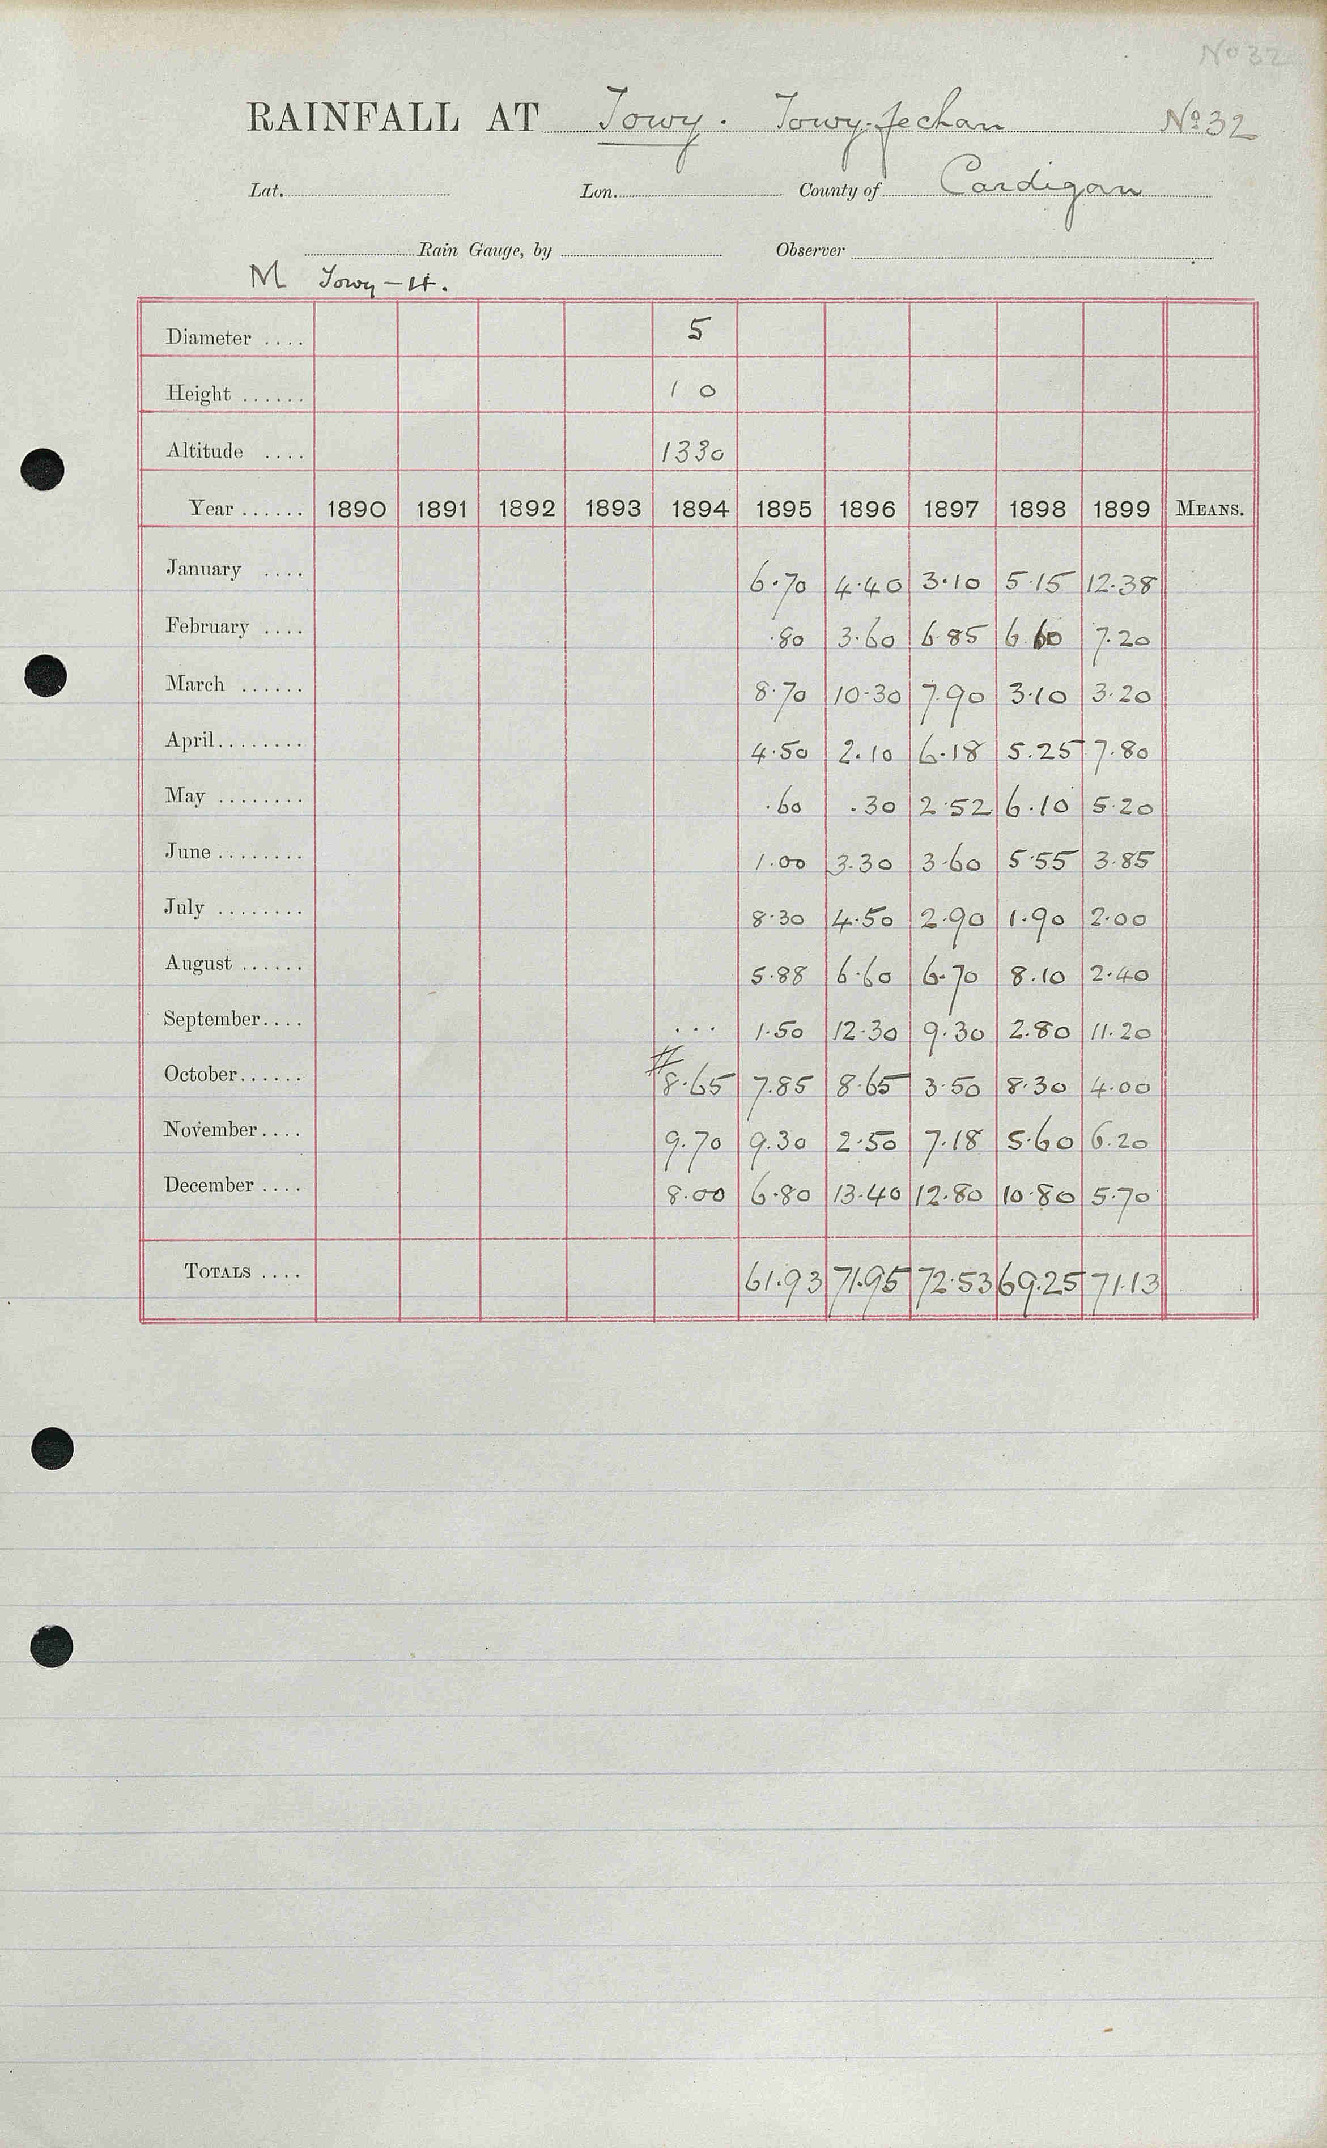 No 32
RAINFALL AT Towy. Towy-fechan No 32
Lat. Lon. County of Cardigan
Rain Gauge, by Observer
M Towy - 4.
Diameter .... 5
Height ...... 1 0
Altitude .... 1330
Year ...... 1890 1891 1892 1893 1894 1895 1896 1897 1898 1899 MEANS.
January .... 6.70 4.40 3.10 5.15 12.38
February .... .80 3.60 6.85 6.60 7.20
March ...... 8.70 10.30 7.90 3.10 3.20
April........ 4.50 2.10 6.18 5.25 7.80
May ........ .60 .30 2.52 6.10 5.20
June ........ 1.00 3.30 3.60 5.55 3.85
July ........ 8.30 4.50 2.90 1.90 2.00
August ...... 5.88 6.60 6.70 8.10 2.40
September.... ... 1.50 12.30 9.30 2.80 11.20
October...... # 8.65 7.85 8.65 3.50 8.30 4.00
November.... 9.70 9.30 2.50 7.18 5.60 6.20
December .... 8.00 6.80 13.40 12.80 10.80 5.70
TOTALS .... 61.93 71.95 72.53 69.25 71.13